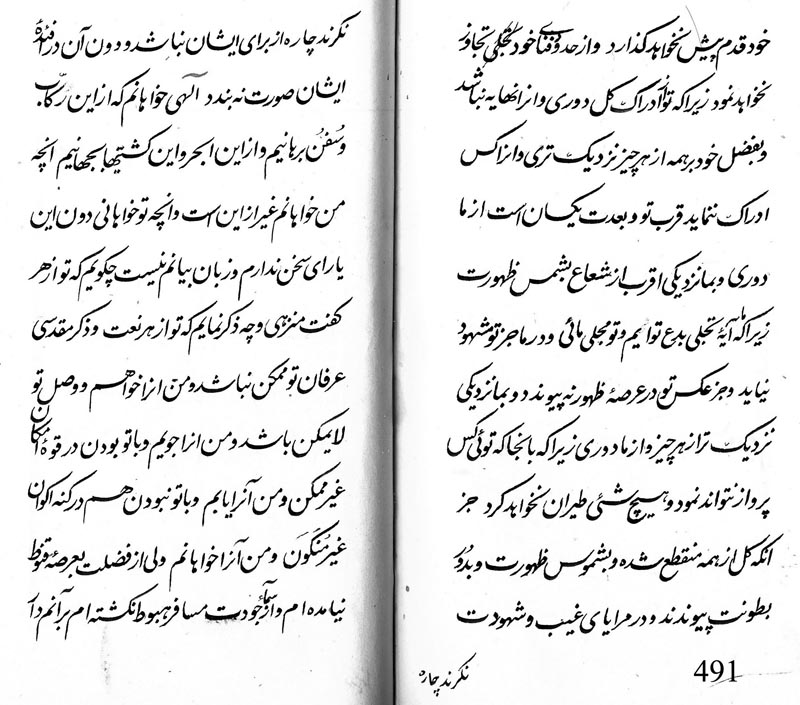 خود قدم پیش نخواهد گذارد و از حد و فنای خود تجلی تجاوز
نخواهد نمود زیرا که تو از ادراک کل دوری و از انهایه نباشد
و بفضل خود بر همه از هر چیز نزدیک تری و از اکس
ادراک ننماید قرب تو و بعدت یکسان است از ما
دوری و بما نزدیکی اقرب از شعاع بشمس ظهورت
زیرا که ما همه آیهٔ تجلی بدع توایم و تو مجلی مائی و در ما جز تو مشهود
نیاید و جز عکس تو در عرصهٔ ظهور نه پیوندد و بما نزدیکی
نزدیک تر از هر چیز و از ما دوری زیرا که بانجا که توئی کس
پرواز نتواند نمود و هیچ شئی طیران نخواهد کرد جز
انکه کل از همه منقطع شده و بشموس ظهورت و بدور
بطونت پیوندند و در مرایای غیب و شهودت
نکرند چاره
491
نکرند چاره از برای ایشان نباشد و دون آن در افئدهٔ
ایشان صورت نه بندد آلهی خواهانم که از این رکاب
و سفن برهانیم و از این ابحر و این کشتیها بجهانیم آنچه
من خواهانم غیر از این است و انچه تو خواهانی دون این
یارای سخن ندارم و زبان بیانم نیست چگویم که تو از هر
گفت منزهی و چه ذکر نمایم که تو از هر نعت و ذکر مقدسی
عرفان تو ممکن نباشد و من انرا خواهم و وصل تو
لایمکن باشد و من انرا جویم و با تو بودن در قوهٔ امکان
غیر ممکن و من آنرا یابم و با تو نبودن هم در کنه اکوان
غیر متکون و من آنرا خواهانم ولی از فضلت بعرصهٔ قنوط
نیامده ام و از سماء جودت مسافر هبوط نکشته ام بر آنم دار